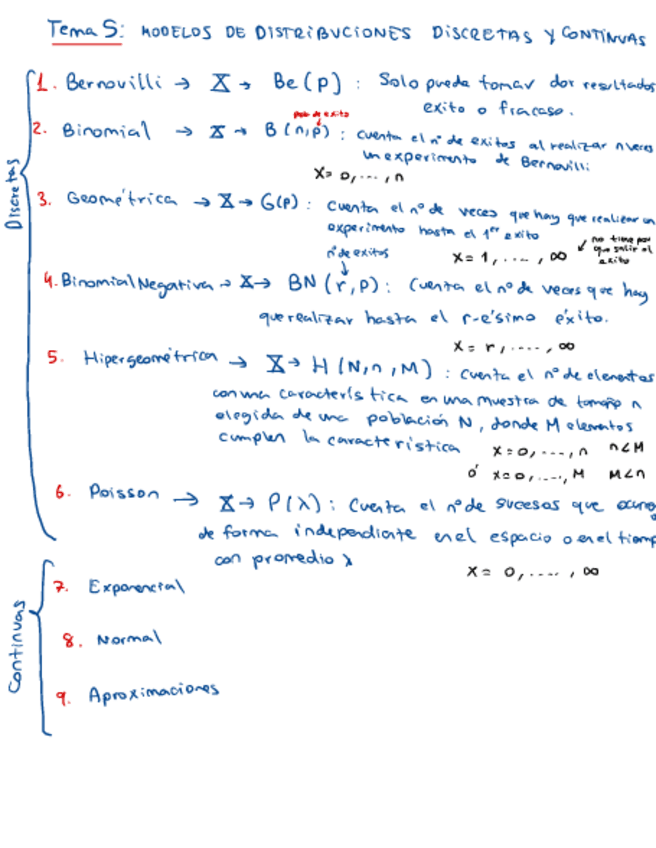 Tema 5: MODELOS DE DISTRIBUCIONES DISCRETAS Y CONTINUAS
Discretas
1. Bernouilli → X → Be (p) : Solo puede tomar dos resultados
exito o fracaso.
prob de exito
2. Binomial → X → B (n,p) : cuenta el nº de exitos al realizar n veces
un experimento de Bernouilli
X= 0, ..., n
3. Geométrica → X → G(p) : cuenta el nº de veces que hay que realizar un
experimento hasta el 1er exito
no tiene por
que salir el
exito
x = 1, ...., ∞
nº de exitos
4. Binomial Negativa → X → BN (r, p) : Cuenta el nº de veces que hay
que realizar hasta el r-ésimo éxito.
X = r, ....., ∞
5. Hipergeométrica → X → H (N, n, M) : cuenta el nº de elementos
con una característica en una muestra de tamaño n
elegida de una población N, donde M elementos
cumplen la caracteristica x = 0, ..., n n<M
ó x = 0, ..., M M<n
6. Poisson → X → P(λ) : Cuenta el nº de sucesos que
de forma independiente en el espacio o en el
con promedio λ
X = 0, ...., ∞
Continuas
7. Exponencial
8. Normal
9. Aproximaciones